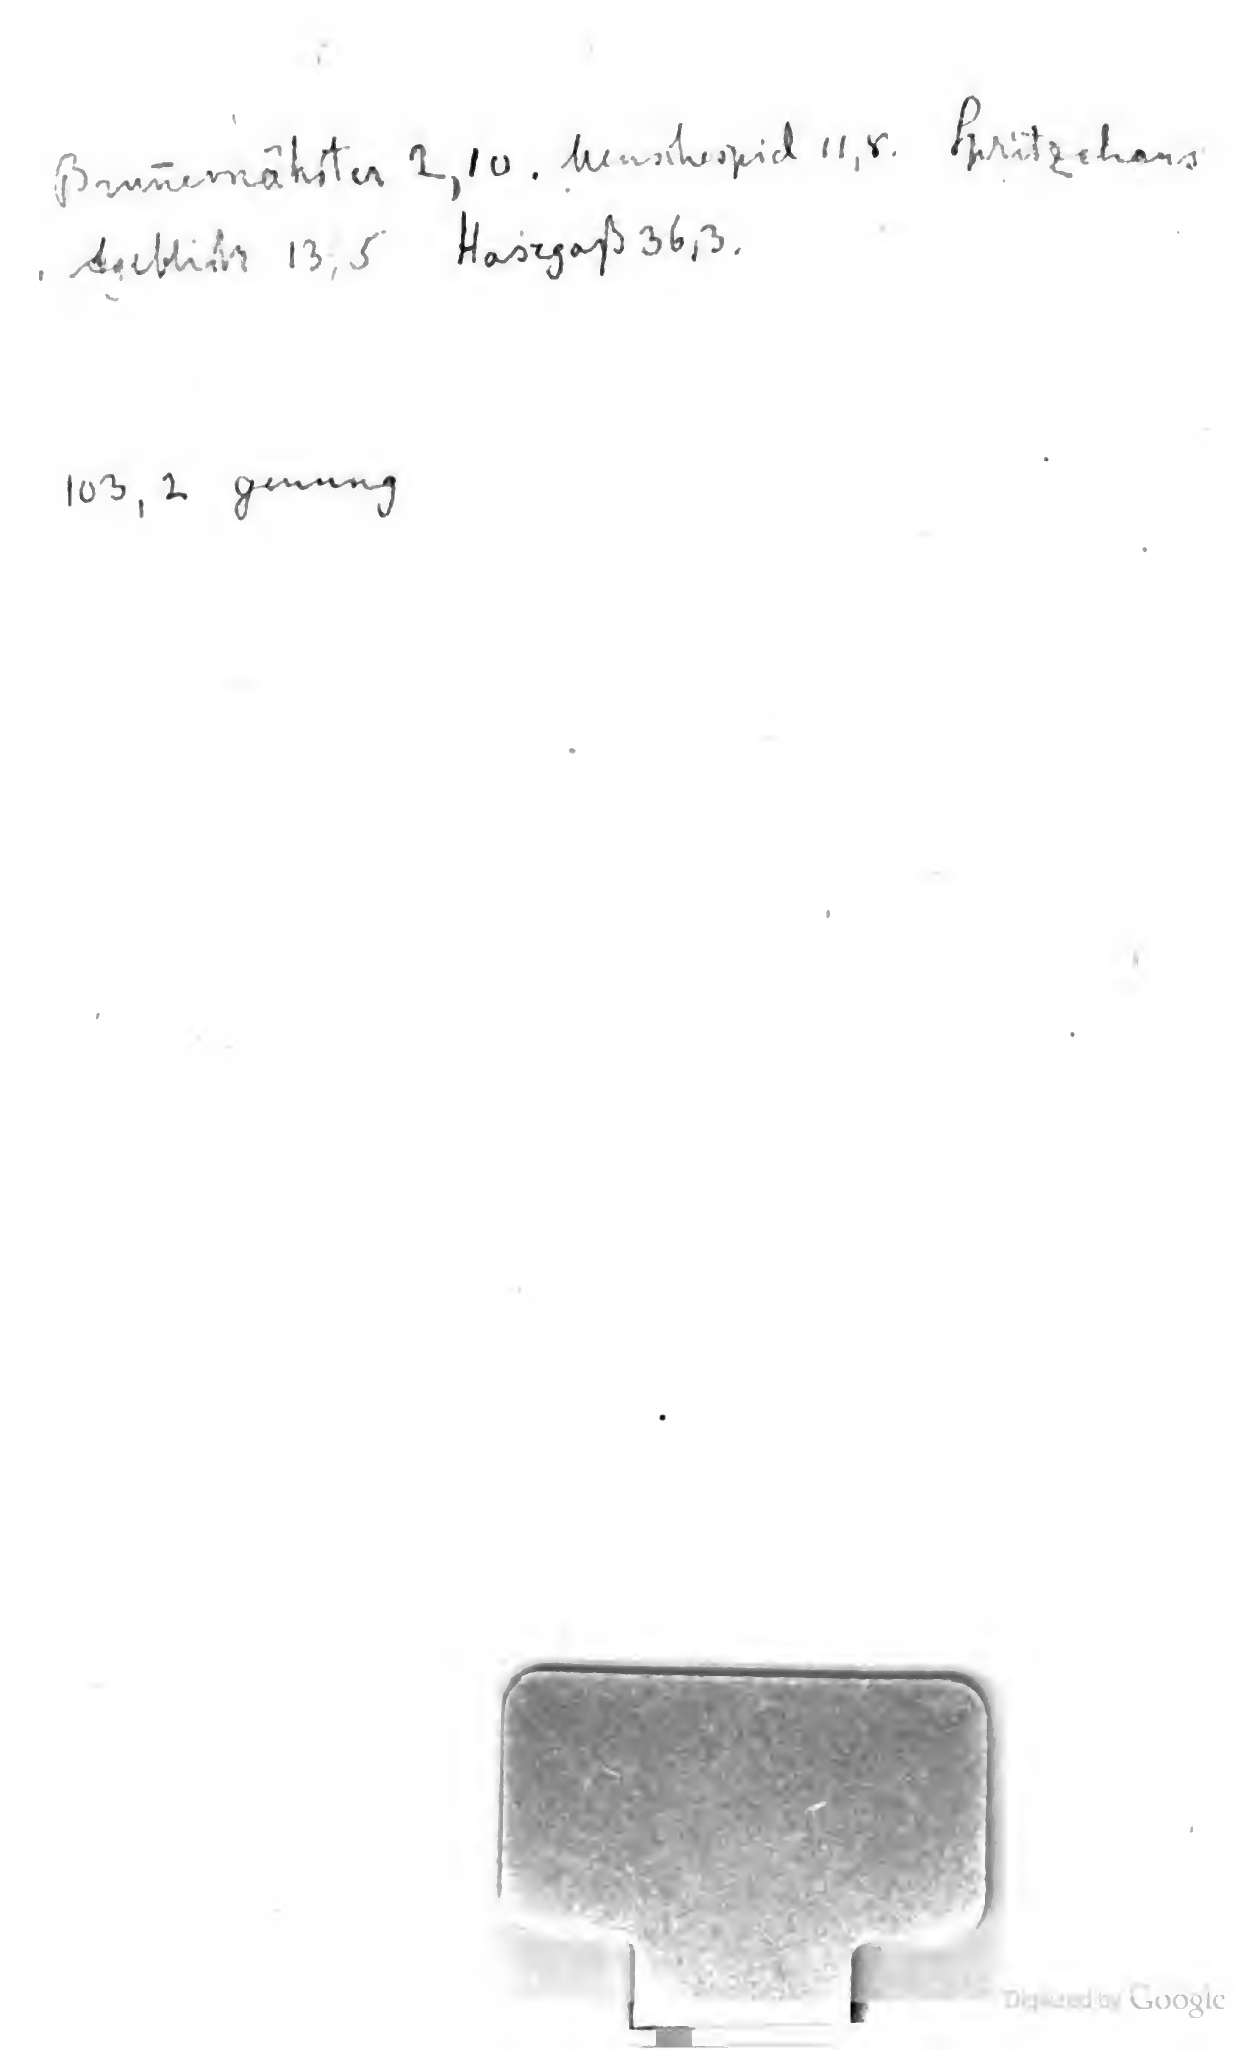 Brun̄emähster 2,10. Menschespid 11,8. Spritzehaus
13,5 Hasegaß 36,3.
103,2 genung
Digitized by Google